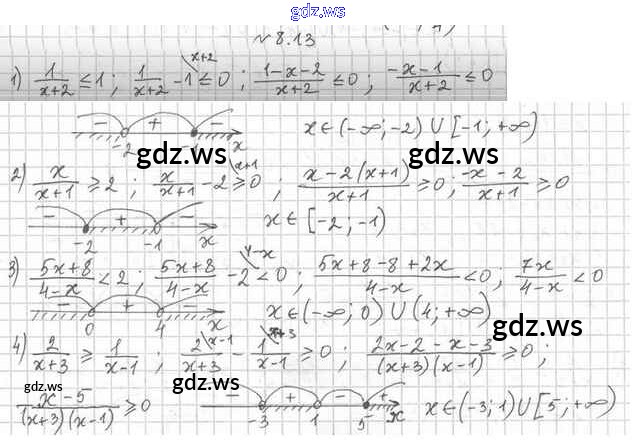 gdz.ws
№8.13
1) 1/(x+2) ≤ 1 ; 1/(x+2) - 1\x+2 ≤ 0 ; (1-x-2)/(x+2) ≤ 0 ; (-x-1)/(x+2) ≤ 0
- + - -2 -1 x x∈(-∞;-2)∪[-1;+∞)
gdz.ws gdz.ws
2) x/(x+1) ≥ 2 ; x/(x+1) - 2\x+1 ≥ 0 ; (x-2(x+1))/(x+1) ≥ 0 ; (-x-2)/(x+1) ≥ 0
- + - -2 -1 x x∈[-2;-1)
3) (5x+8)/(4-x) < 2 ; (5x+8)/(4-x) - 2\4-x < 0 ; (5x+8-8+2x)/(4-x) < 0 ; 7x/(4-x) < 0
- + - 0 4 x x∈(-∞;0)∪(4;+∞)
gdz.ws
4) 2/(x+3) ≥ 1/(x-1) ; 2\x-1/(x+3) - 1\x+3/(x-1) ≥ 0 ; (2x-2-x-3)/((x+3)(x-1)) ≥ 0 ;
gdz.ws gdz.ws
(x-5)/((x+3)(x-1)) ≥ 0 - + - + -3 1 5 x x∈(-3;1)∪[5;+∞)
gdz.ws